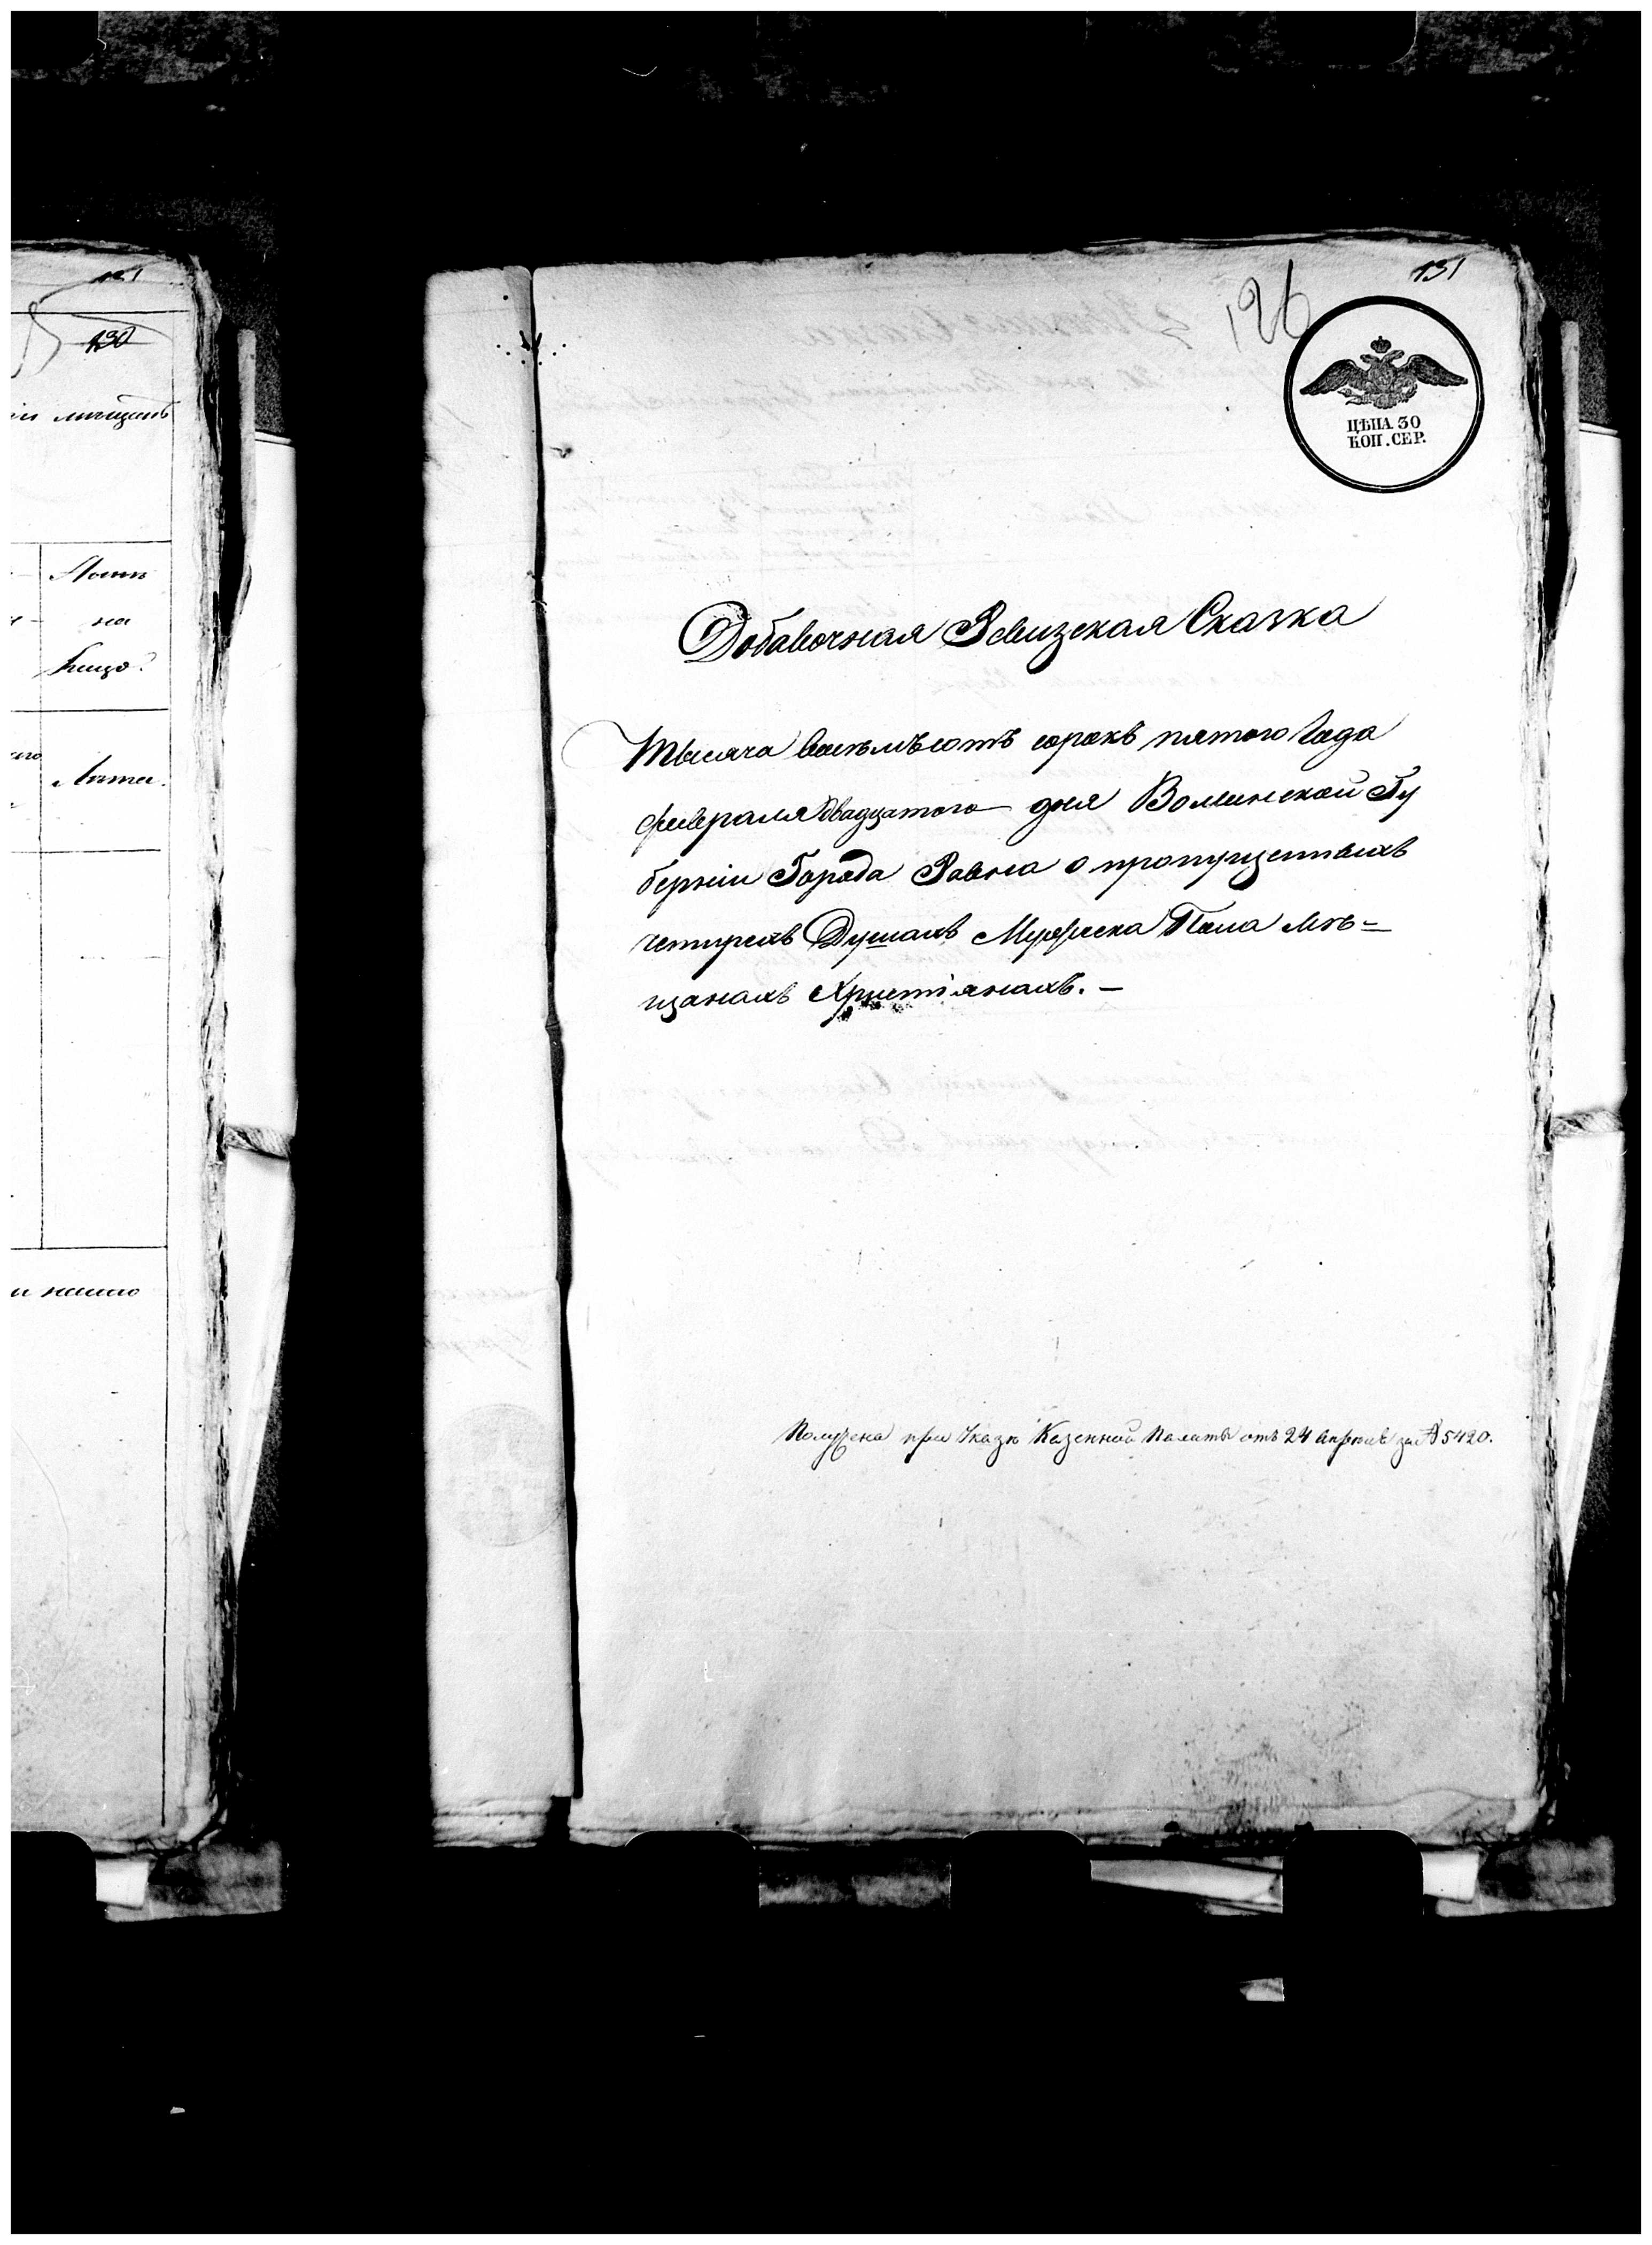 131
130
мѣщанъ
Лѣта.
126
131
ЦѢНА 30
КОП. СЕР.
Добавочная Ревизская Сказка
Тысяча восемьсотъ сорокъ пятого Года
февраля двадцатого дня Волинской Гу
берніи Города Равна о пропущенныхъ
четырехъ Душахъ Мужеска Пола мѣ=
щанахъ Христіянахъ. —
Получена при Указѣ Казенной Палаты отъ 24 апрѣля за № 5420.